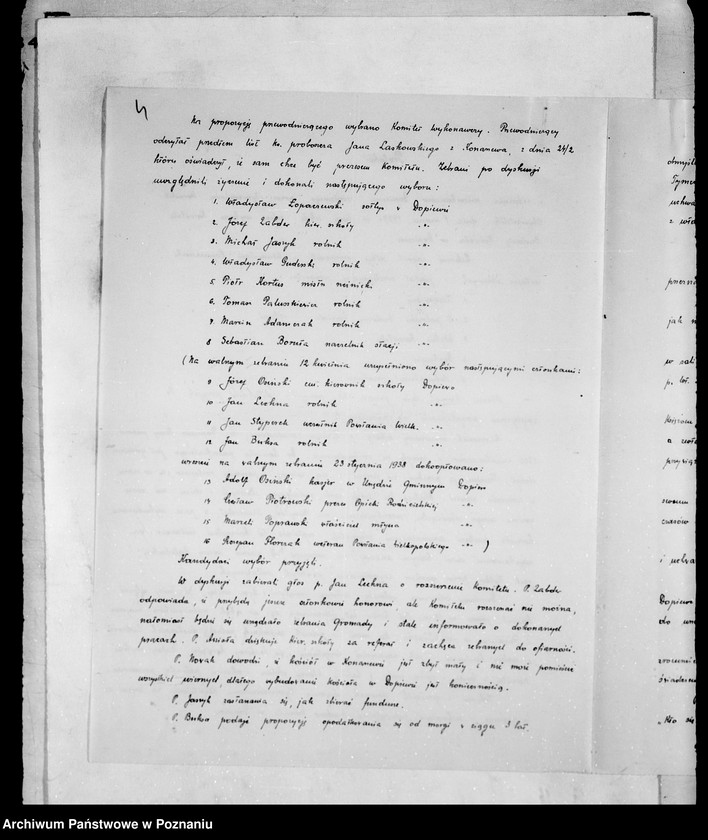 4
Na propozycję przewodniczącego wybrano Komitet Wykonawczy. Przewodniczący
odczytał przedtem list ks. proboszcza Jana Laskowskiego z Konarzewa, z dnia 24/2
który oświadczył, iż sam chce być prezesem Komitetu. Zebrani po dyskusji
uwzględnili życzenie i dokonali następującego wyboru:
1. Władysław Łopaczewski sołtys z Dopiewa
2. Józef Zabdor kier. szkoły -"-
3. Michał Jaszyk rolnik -"-
4. Władysław rolnik -"-
5. Piotr Kortus mistrz -"-
6. Toman Paluszkiewicz rolnik -"-
7. Marcin Adamczak rolnik -"-
8 Sebastian Boruta naczelnik stacji -"-
(Na walnym zebraniu 12 kwietnia uzupełniono wybór następującymi członkami:
9 Józef Osiński em. kierownik szkoły Dopiewo
10 Jan Lechna rolnik -"-
11 Jan Styperek uczestnik Powstania Wielk. -"-
12 Jan Buksa rolnik -"-
wreszcie na walnym zebraniu 23 stycznia 1938 dokooptowano:
13 Adolf Osiński kasjer w Urzędzie Gminnym Dopiewo
14 Czesław Piotrowski prezes Opieki Rodzicielskiej -"-
15 Marceli Poprawski właściciel młyna -"-
16 Szczepan Florczak weteran Powstania Wielkopolskiego -"- )
Kandydaci wybór przyjęli.
W dyskusji zabierał głos p. Jan Lechna o rozszerzenie Komitetu. P. Zabdor
odpowiada, iż przybędą jeszcze członkowie honorowi, ale Komitetu rozszerzać nie można,
natomiast będzie się urządzało zebrania Gromady i stale informowało o dokonanych
pracach. P. dziękuje kier. szkoły za referat i zachęca zebranych do ofiarności.
P. Nowak dowodzi, iż kościół w Konarzewie jest zbyt mały i nie może pomieścić
wszystkich wiernych, dlatego wybudowanie kościoła w Dopiewie jest koniecznością.
P. Jaszyk zastanawia się, jak zbierać fundusze.
P. Buksa podaje propozycję opodatkowania się od morgi w ciągu 3 lat.
Archiwum Państwowe w Poznaniu